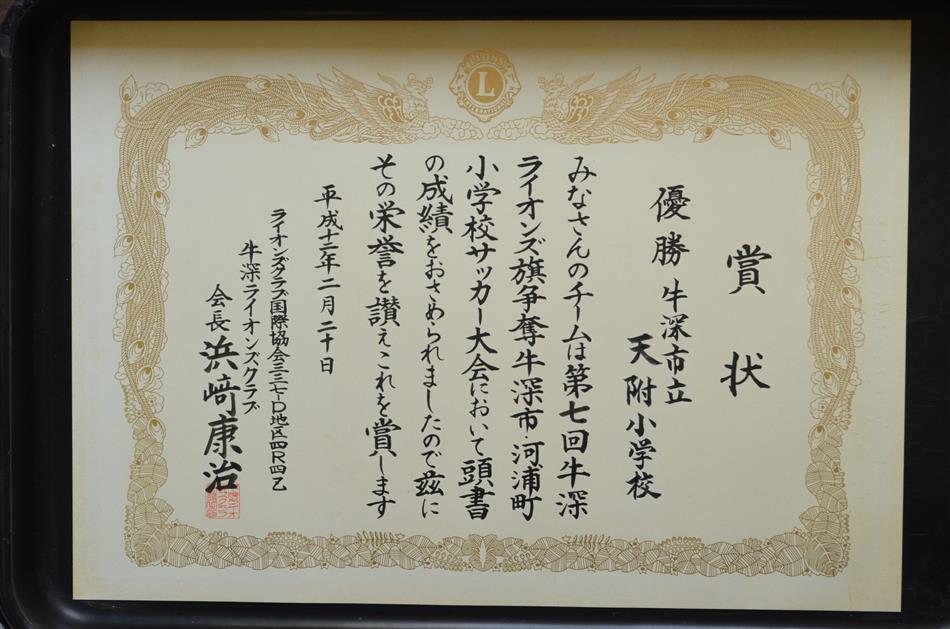 賞状
優勝 牛深市立
天附小学校
みなさんのチームは第七回牛深
ライオンズ旗争奪牛深市・河浦町
小学校サッカー大会において頭書
の成績をおさめられましたので茲に
その栄誉を讃えこれを賞します
平成十二年二月二十日
ライオンズクラブ国際協会三三七-D地区四R四Z
牛深ライオンズクラブ
会長 浜崎康治
LIONS
L
INTERNATIONAL